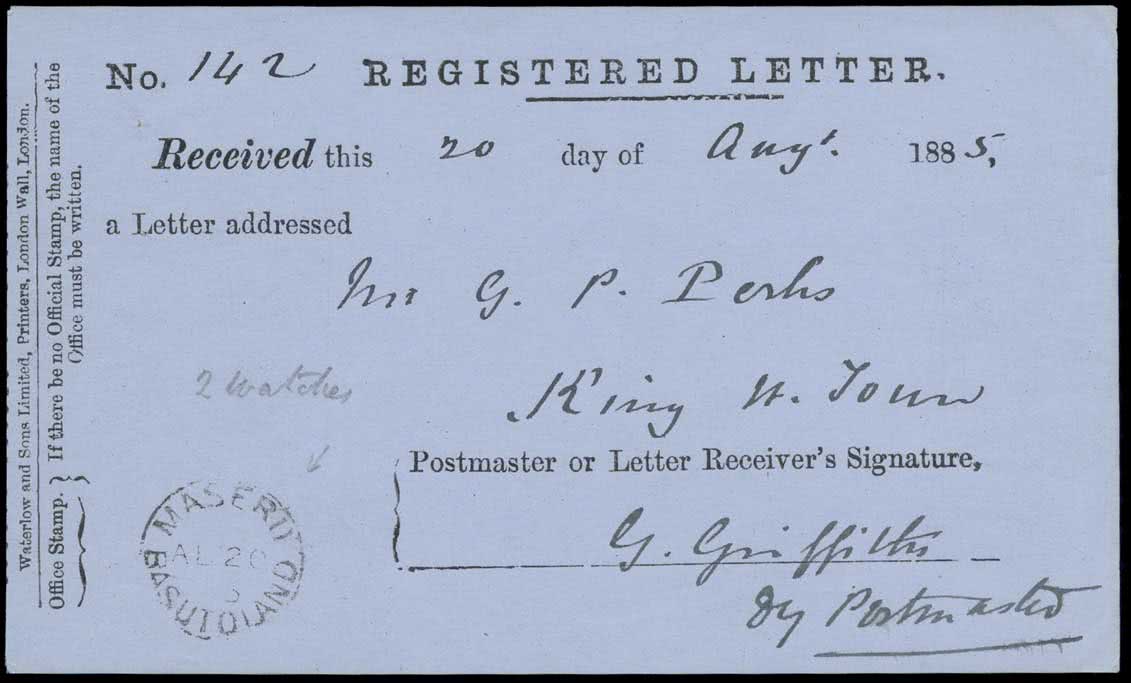 No. 142 REGISTERED LETTER.
Received this 20 day of Augt. 1885,
a Letter addressed
Mr G. P. Perks
King W. Town
2 watches
Postmaster or Letter Receiver's Signature,
G. Griffiths
Dy Postmaster
MASERU
BASUTOLAND
Office Stamp. } If there be no Official Stamp, the name of the
Office must be written.
Waterlow and Sons Limited, Printers, London Wall, London.